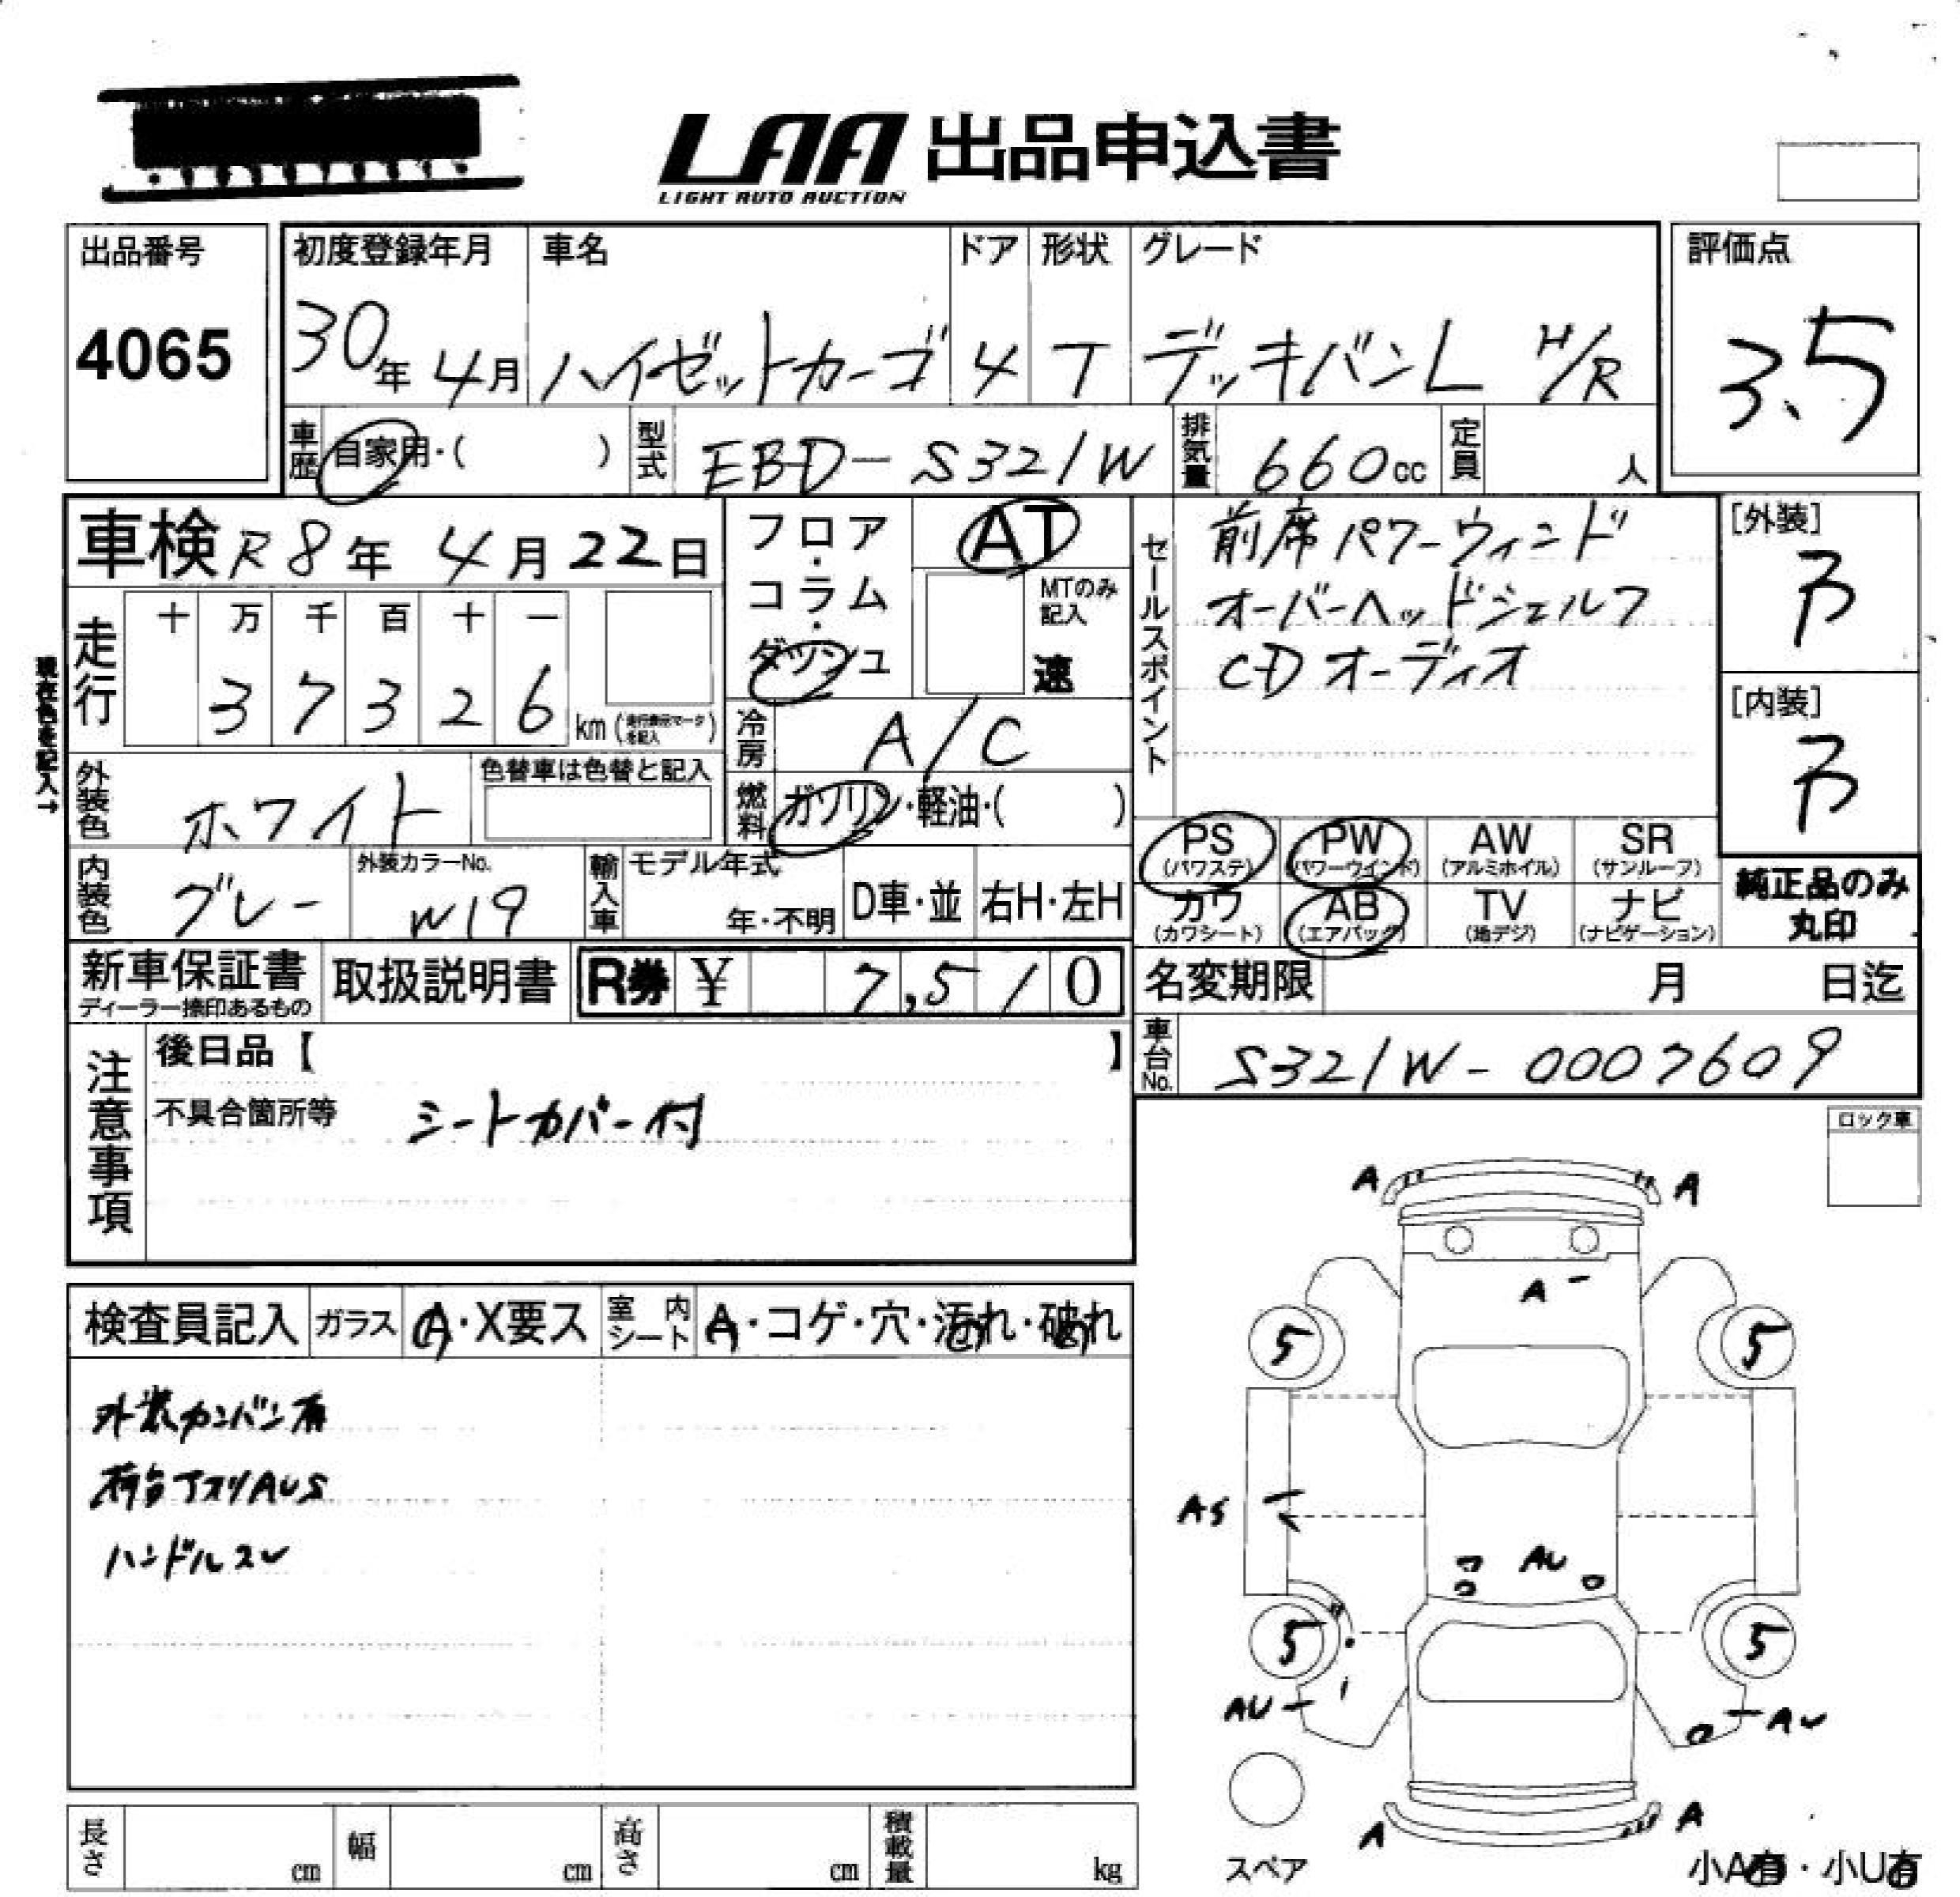 LAA 出品申込書
LIGHT AUTO AUCTION
出品番号
4065
初度登録年月
30年 4月
車名
ハイゼットカーゴ
ドア
4
形状
T
グレード
デッキバンL H/R
評価点
3.5
車歴 自家用・( )
型式 EBD-S321W
排気量 660cc
定員 人
車検 R8年 4月 22日
フロア・コラム・ダッシュ
AT
MTのみ記入
速
セールスポイント
前席パワーウィンド
オーバーヘッドシェルフ
CDオーディオ
[外装]
[内装]
現在色を記入→
走行
十 万 千 百 十 一
3 7 3 2 6 km (走行表示マークを記入)
冷房 A/C
燃料 ガソリン・軽油・( )
外装色 ホワイト
色替車は色替と記入
内装色 グレー
外装カラーNo.
W19
輸入車
モデル年式
年・不明
D車・並
右H・左H
PS (パワステ)
PW (パワーウインド)
AW (アルミホイル)
SR (サンルーフ)
カワ (カワシート)
AB (エアバック)
TV (地デジ)
ナビ (ナビゲーション)
純正品のみ
丸印
新車保証書
ディーラー捺印あるもの
取扱説明書
R券 ¥ 7,510
名変期限 月 日迄
車台No. S321W-0007609
注意事項
後日品【 】
不具合箇所等 シートカバー付
ロック車
検査員記入
ガラス A・X要ス
室内シート A・コゲ・穴・汚れ・破れ
外装カンバン有
荷台アオリAUS
ハンドルスレ
A A
A
5 5
AS
AU
5 5
AU AU
A A
スペア
小A有・小U有
長さ cm
幅 cm
高さ cm
積載量 kg